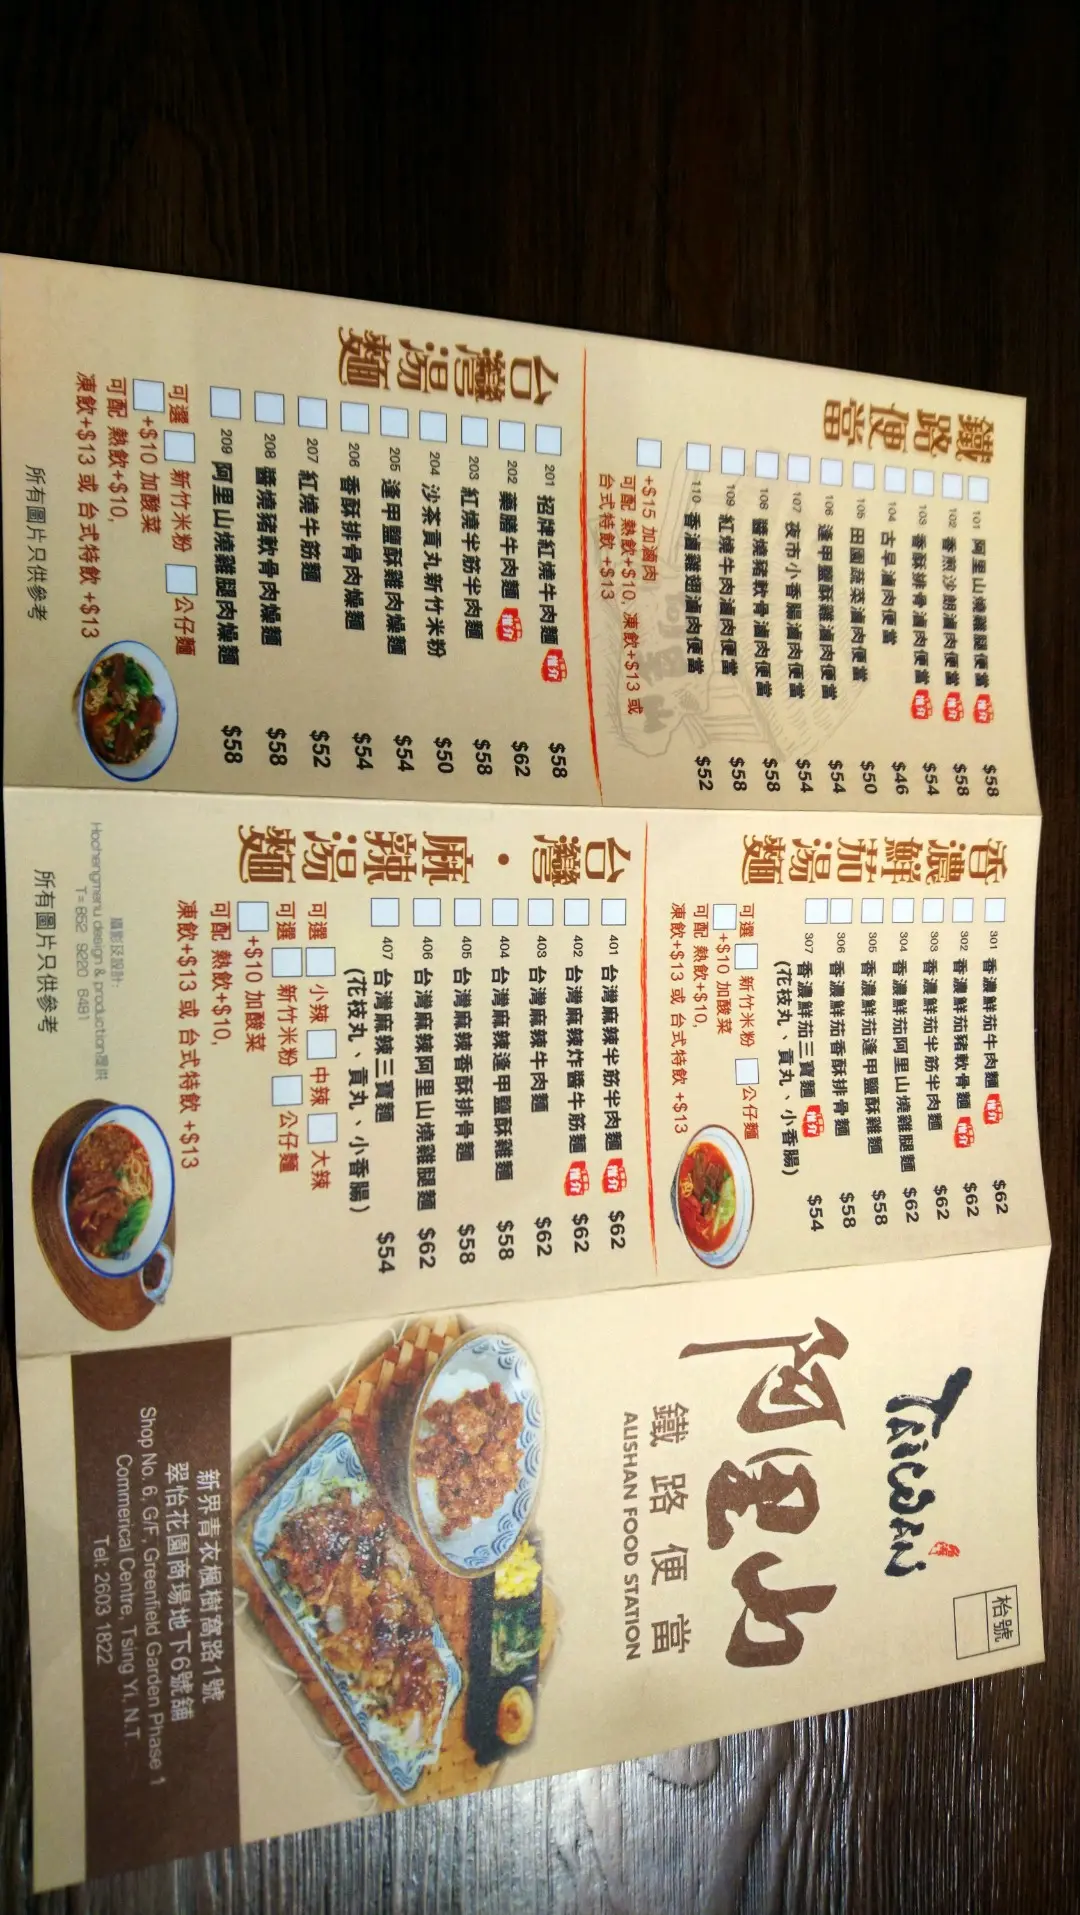 鐵路便當
101 阿里山燒雞腿便當 推介 $58
102 香煎沙朗滷肉便當 推介 $58
103 香酥排骨滷肉便當 推介 $54
104 古早滷肉便當 $46
105 田園蔬菜滷肉便當 $50
106 逢甲鹽酥雞滷肉便當 $54
107 夜市小香腸滷肉便當 $54
108 醬燒豬軟骨滷肉便當 $58
109 紅燒牛肉滷肉便當 $58
110 香滷雞翅滷肉便當 $52
+$15 加滷肉
可配 熱飲+$10, 凍飲+$13 或
台式特飲 +$13
台灣湯麵
201 招牌紅燒牛肉麵 推介 $58
202 藥膳牛肉麵 推介 $62
203 紅燒半筋半肉麵 $58
204 沙茶貢丸新竹米粉 $50
205 逢甲鹽酥雞肉燥麵 $54
206 香酥排骨肉燥麵 $54
207 紅燒牛筋麵 $52
208 醬燒豬軟骨肉燥麵 $58
209 阿里山燒雞腿肉燥麵 $58
可選 新竹米粉 公仔麵
+$10 加酸菜
可配 熱飲+$10,
凍飲+$13 或 台式特飲 +$13
所有圖片只供參考
香濃鮮茄湯麵
301 香濃鮮茄牛肉麵 推介 $62
302 香濃鮮茄豬軟骨麵 推介 $62
303 香濃鮮茄半筋半肉麵 $62
304 香濃鮮茄阿里山燒雞腿麵 $62
305 香濃鮮茄逢甲鹽酥雞麵 $58
306 香濃鮮茄香酥排骨麵 $58
307 香濃鮮茄三寶麵 推介 $54
(花枝丸、貢丸、小香腸)
可選 新竹米粉 公仔麵
+$10 加酸菜
可配 熱飲+$10,
凍飲+$13 或 台式特飲 +$13
台灣・麻辣湯麵
401 台灣麻辣半筋半肉麵 推介 $62
402 台灣麻辣炸醬牛筋麵 推介 $62
403 台灣麻辣牛肉麵 $62
404 台灣麻辣逢甲鹽酥雞麵 $58
405 台灣麻辣香酥排骨麵 $58
406 台灣麻辣阿里山燒雞腿麵 $62
407 台灣麻辣三寶麵 $54
(花枝丸、貢丸、小香腸)
可選 小辣 中辣 大辣
可選 新竹米粉 公仔麵
+$10 加酸菜
可配 熱飲+$10,
凍飲+$13 或 台式特飲 +$13
攝影及設計:
Hochengmenu design & production提供
T= 852 9220 6491
所有圖片只供參考
枱號
TAIWAN
阿里山
鐵路便當
ALISHAN FOOD STATION
新界青衣楓樹窩路1號
翠怡花園商場地下6號舖
Shop No. 6, G/F, Greenfield Garden Phase 1
Commerical Centre, Tsing Yi, N.T.
Tel: 2603 1822